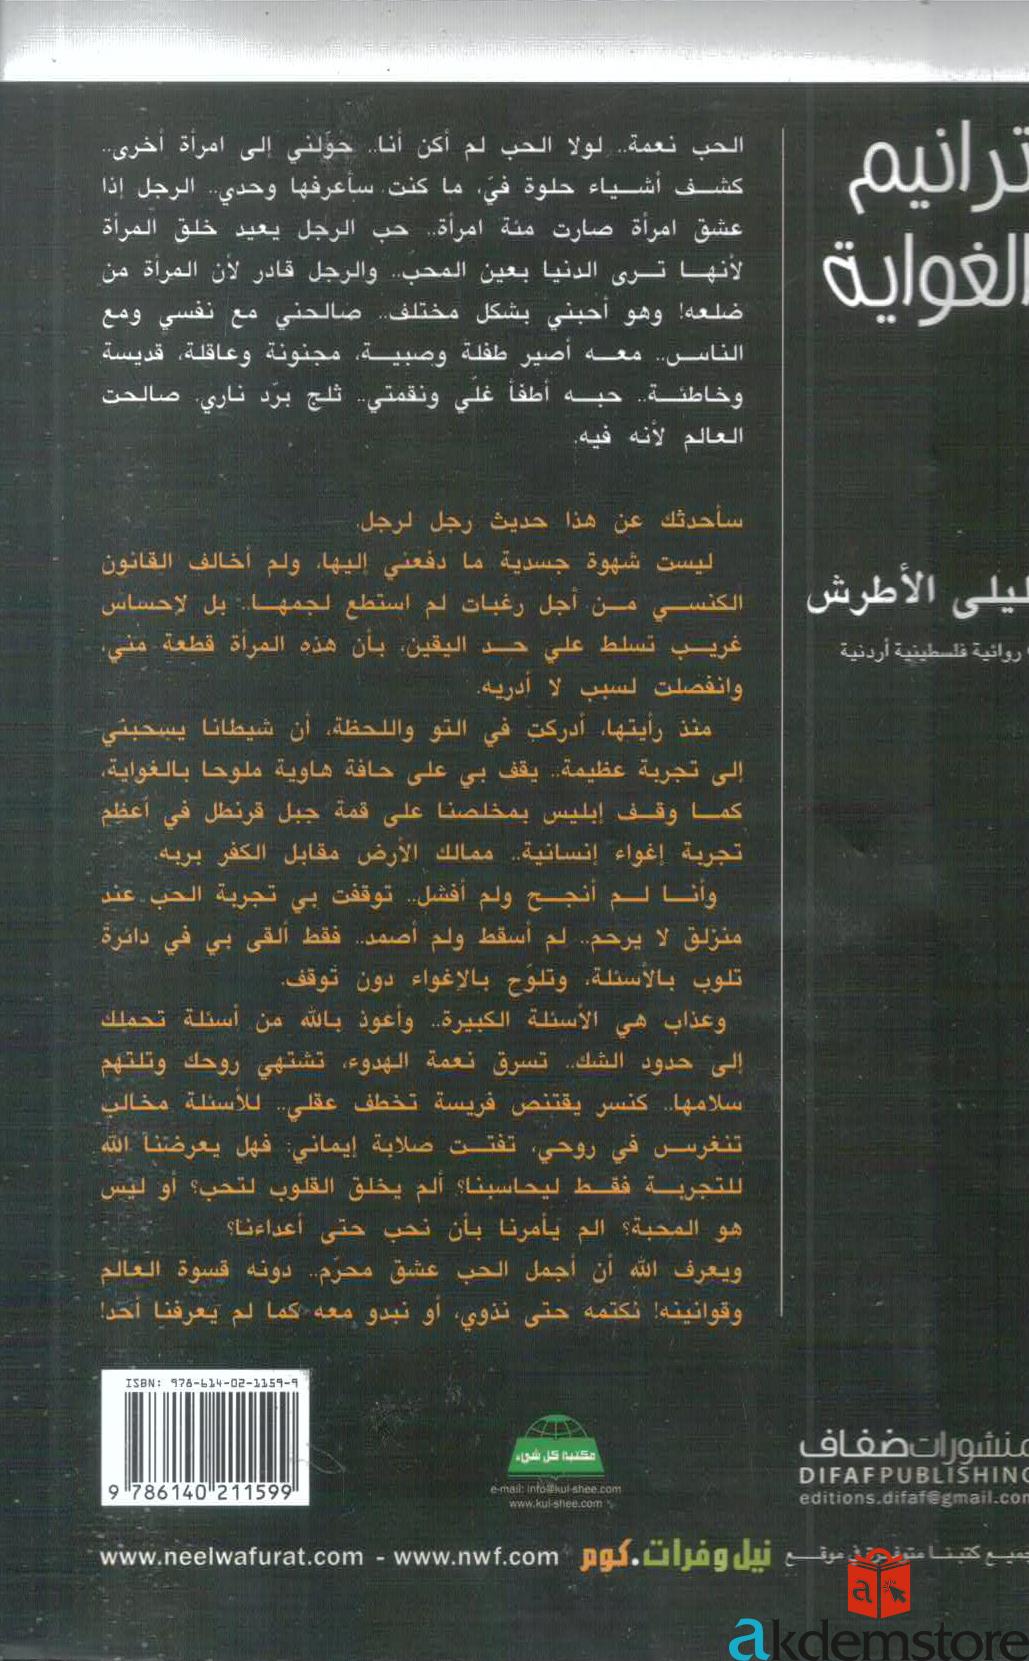 ترانيم
الغواية
ليلى الأطرش
روائية فلسطينية أردنية
الحب نعمة.. لولا الحب لم أكن أنا.. حوّلني إلى امرأة أخرى..
كشف أشياء حلوة فيّ، ما كنت سأعرفها وحدي.. الرجل إذا
عشق امرأة صارت مئة امرأة.. حب الرجل يعيد خلق المرأة
لأنها ترى الدنيا بعين المحبّ.. والرجل قادر لأن المرأة من
ضلعه! وهو أحبني بشكل مختلف.. صالحني مع نفسي ومع
الناس.. معه أصير طفلة وصبية، مجنونة وعاقلة، قديسة
وخاطئة.. حبه أطفأ غلّي ونقمتي.. ثلج برّد ناري. صالحت
العالم لأنه فيه.
سأحدثك عن هذا حديث رجل لرجل.
ليست شهوة جسدية ما دفعني إليها، ولم أخالف القانون
الكنسي من أجل رغبات لم استطع لجمها.. بل لإحساس
غريب تسلط علي حد اليقين، بأن هذه المرأة قطعة مني،
وانفصلت لسبب لا أدريه.
منذ رأيتها، أدركت في التو واللحظة، أن شيطانا يسحبني
إلى تجربة عظيمة.. يقف بي على حافة هاوية ملوحا بالغواية،
كما وقف إبليس بمخلصنا على قمة جبل قرنطل في أعظم
تجربة إغواء إنسانية.. ممالك الأرض مقابل الكفر بربه.
وأنا لم أنجح ولم أفشل.. توقفت بي تجربة الحب عند
منزلق لا يرحم.. لم أسقط ولم أصمد.. فقط ألقى بي في دائرة
تلوب بالأسئلة، وتلوّح بالإغواء دون توقف.
وعذاب هي الأسئلة الكبيرة.. وأعوذ بالله من أسئلة تحملك
إلى حدود الشك.. تسرق نعمة الهدوء، تشتهي روحك وتلتهم
سلامها.. كنسر يقتنص فريسة تخطف عقلي.. للأسئلة مخالب
تنغرس في روحي، تفتت صلابة إيماني: فهل يعرضنا الله
للتجربة فقط ليحاسبنا؟ ألم يخلق القلوب لتحب؟ أو ليس
هو المحبة؟ الم يأمرنا بأن نحب حتى أعداءنا؟
ويعرف الله أن أجمل الحب عشق محرّم.. دونه قسوة العالم
وقوانينه! نكتمه حتى نذوي، أو نبدو معه كما لم يعرفنا أحد!
ISBN: 978-614-02-1159-9
9 786140 211599
مكتبة كل شيء
e-mail: info@kul-shee.com
www.kul-shee.com
منشورات ضفاف
DIFAF PUBLISHING
editions.difaf@gmail.com
جميع كتبنا متوفرة في موقع نيل وفرات.كوم www.neelwafurat.com - www.nwf.com
a
akdemstore